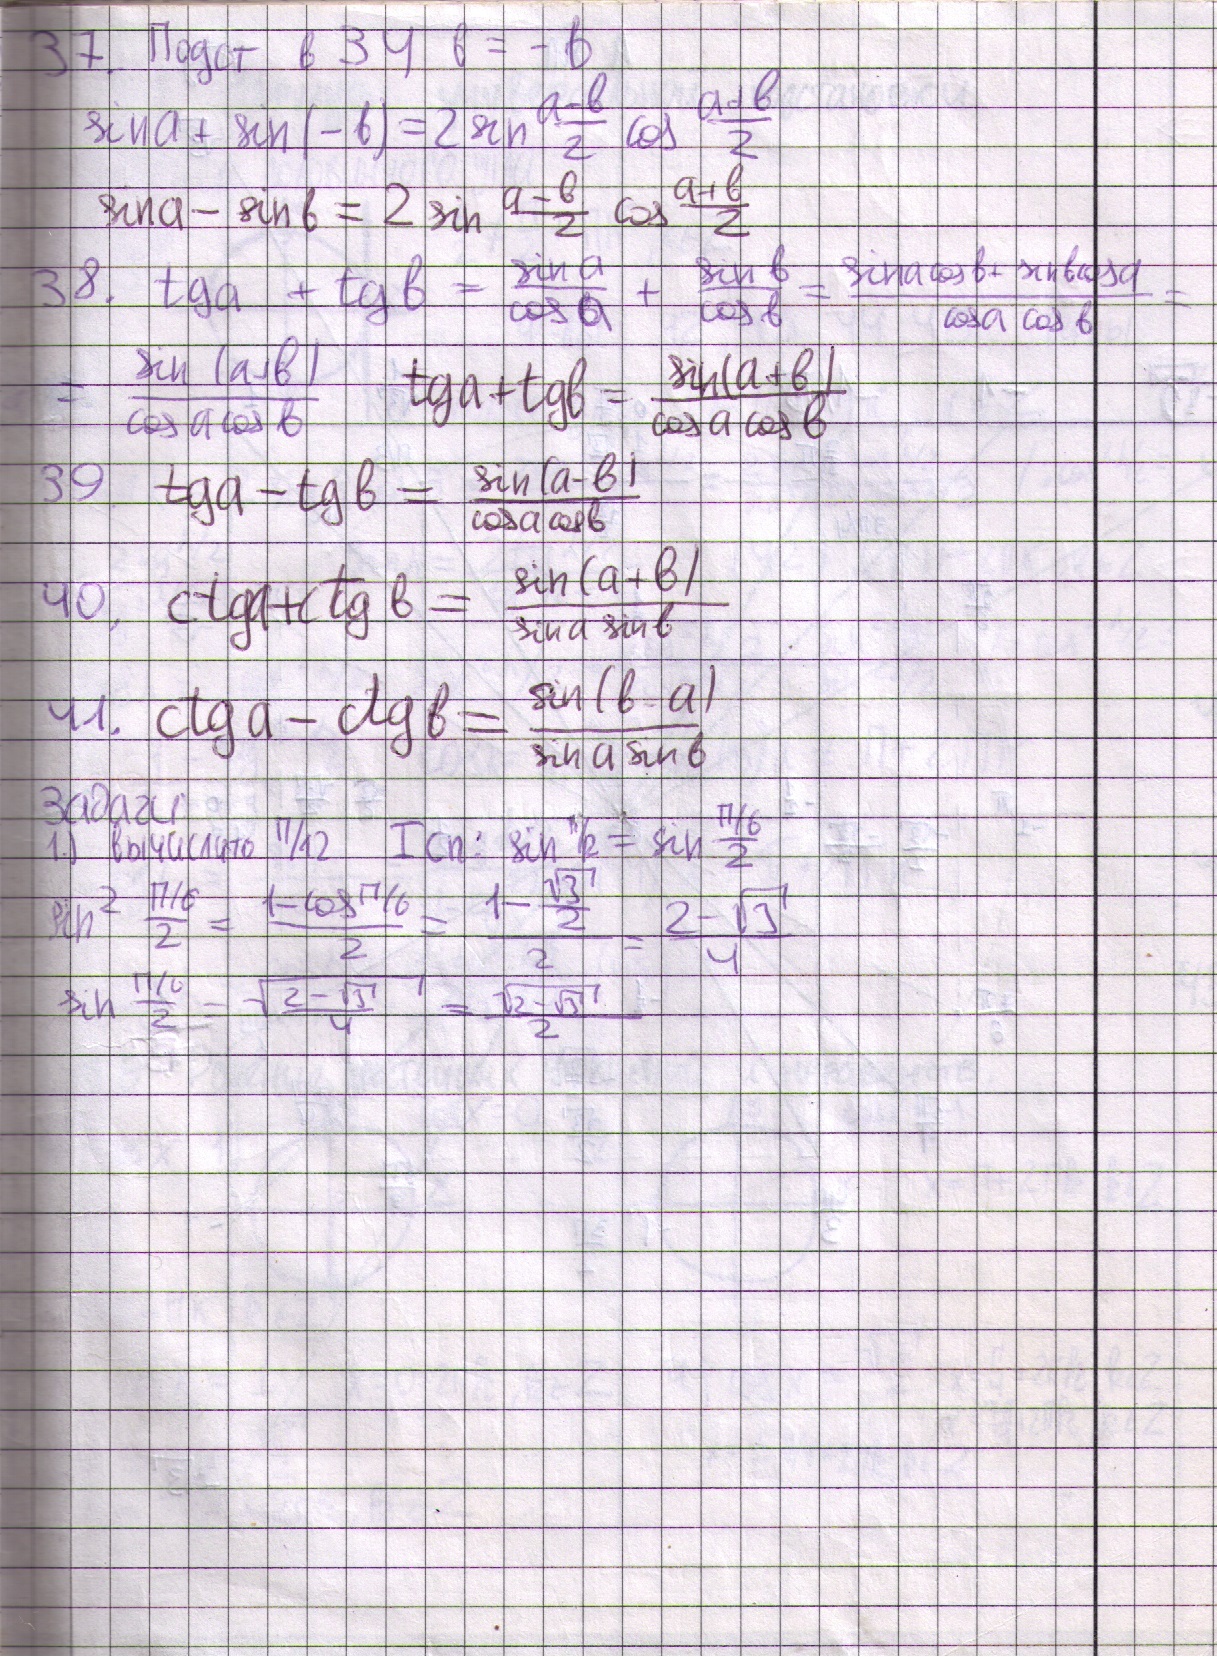 37. Подст в 34 в = -в
sin a + sin(-в) = 2 sin (a-в)/2 cos (a+в)/2
sin a - sin в = 2 sin (a-в)/2 cos (a+в)/2
38. tg a + tg в = sin a/cos a + sin в/cos в = (sin a cos в + sin в cos a)/(cos a cos в) =
= sin (a+в)/(cos a cos в) tg a + tg в = sin(a+в)/(cos a cos в)
39 tg a - tg в = sin(a-в)/(cos a cos в)
40. ctg a + ctg в = sin(a+в)/(sin a sin в)
41. ctg a - ctg в = sin(в-a)/(sin a sin в)
Задачи
1.) вычислить П/12 I сп: sin П/12 = sin (П/6)/2
sin² (П/6)/2 = (1-cos П/6)/2 = (1-√3/2)/2 = (2-√3)/4
sin (П/6)/2 = √((2-√3)/4) = √(2-√3)/2